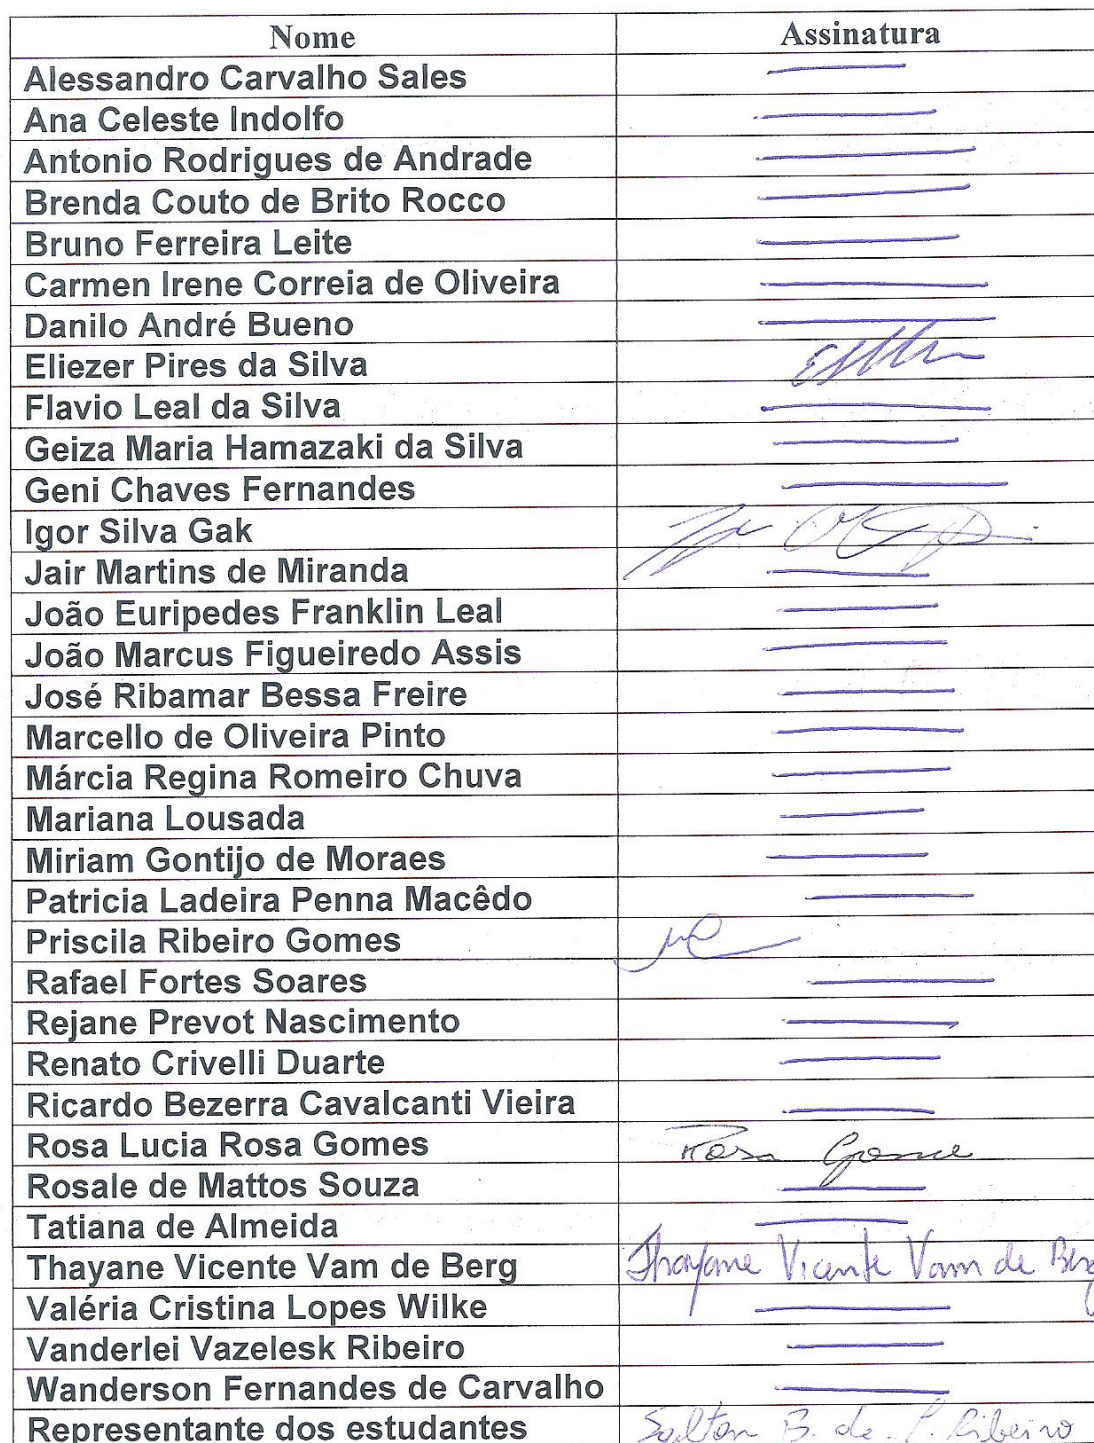 Nome Assinatura
Alessandro Carvalho Sales
Ana Celeste Indolfo
Antonio Rodrigues de Andrade
Brenda Couto de Brito Rocco
Bruno Ferreira Leite
Carmen Irene Correia de Oliveira
Danilo André Bueno
Eliezer Pires da Silva
Flavio Leal da Silva
Geiza Maria Hamazaki da Silva
Geni Chaves Fernandes
Igor Silva Gak
Jair Martins de Miranda
João Euripedes Franklin Leal
João Marcus Figueiredo Assis
José Ribamar Bessa Freire
Marcello de Oliveira Pinto
Márcia Regina Romeiro Chuva
Mariana Lousada
Miriam Gontijo de Moraes
Patricia Ladeira Penna Macêdo
Priscila Ribeiro Gomes
Rafael Fortes Soares
Rejane Prevot Nascimento
Renato Crivelli Duarte
Ricardo Bezerra Cavalcanti Vieira
Rosa Lucia Rosa Gomes Rosa Gomes
Rosale de Mattos Souza
Tatiana de Almeida
Thayane Vicente Vam de Berg Thayane Vicente Vam de Berg
Valéria Cristina Lopes Wilke
Vanderlei Vazelesk Ribeiro
Wanderson Fernandes de Carvalho
Representante dos estudantes B. de P. Ribeiro